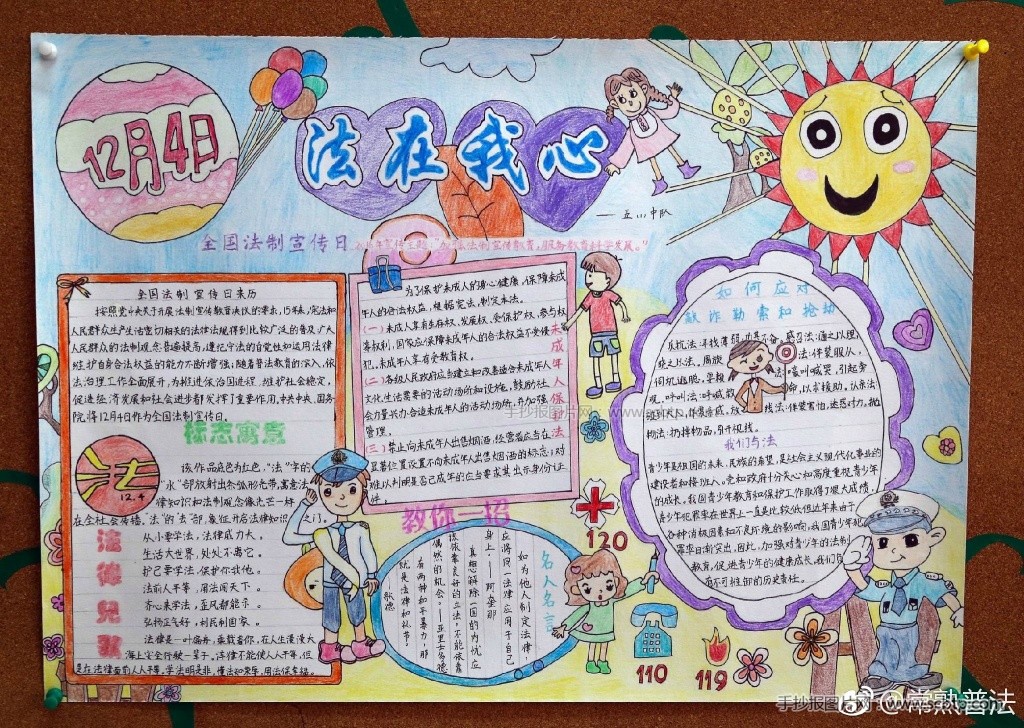 12月4日
法在我心
——五(1)中队
全国法制宣传日
全国法制宣传日来历
按照党中央关于开展法制宣传教育决议的要求，15年来，宪法和
人民群众生产生活密切相关的法律法规得到比较广泛的普及，广大
人民群众的法制观念普遍提高，遵纪守法的自觉性和运用法律
维护自身合法权益的能力不断增强；随着普法教育的深入，依
法治理工作全面展开，为推进依法治国进程，维护社会稳定，
促进经济发展和社会进步都发挥了重要作用，中共中央、国务
院将12月4日作为全国法制宣传日。
标志寓意
法
12.4
该作品底色为红色，"法"字的
"水"部放射出条弧形光带，寓意法
律知识和法制观念像光芒一样
在全社会传播，法"的"去"部，象征开启法律知识之门。
法德兄弟
从小要学法，法律威力大。
生活大世界，处处不离它。
护己要学法，保护你我他。
法前人平等，用法闯天下。
齐心来学法，歪风都能杀。
弘扬正气好，利民利国家。
法律是一叶扁舟，乘载着你，在人生漫漫大
海上安全行驶一辈子。法律不能使人人平等，但
是在法律面前人人平等，学法明是非，懂法知荣辱，用法保幸福。
未成年人保护法
为了保护未成年人的身心健康，保障未成
年人的合法权益，根据宪法，制定本法。
(一)未成年人享有生存权、发展权、受保护权、参与权
等权利，国家应保障未成年人的合法权益不受侵
犯，未成年人享有受教育权。
(二)各级人民政府应当建立和改善适合未成年人
文化生活需要的活动场所和设施，鼓励社
会力量兴办合适未成年人的活动场所，并加强
管理。
(三)禁止向未成年人出售烟酒，经营者应当在
显著位置设置不向未成年人出售烟酒的标志；对
难以判明是否已成年的应当要求其出示身份证
件。
教你一招
名人名言
如为他人制定法律，
应将同一法律应用于自己
身上。——阿奎那
真想解除一国的内忧应
该依靠良好的立法，不能依靠
偶然的机会。——亚里士多德
有两种和平暴力，那
就是法律和礼节。
——歌德
120
110
119
如何应对
敲诈勒索和抢劫
我们与法
青少年是祖国的未来，民族的希望，是社会主义现代化事业的
建设者和接班人。党和政府十分关心和高度重视青少年
的成长。我国青少年教育和保护工作取得了很大成绩，
青少年犯罪率在世界上一直是比较低，但近年来由于
各种消极因素和不良环境的影响，我国青少年犯
罪率日渐突出，因此，加强对青少年的法制
教育，促进青少年的健康成长，我们负
有不可推卸的历史责任。
手抄报图片网
@常熟普法